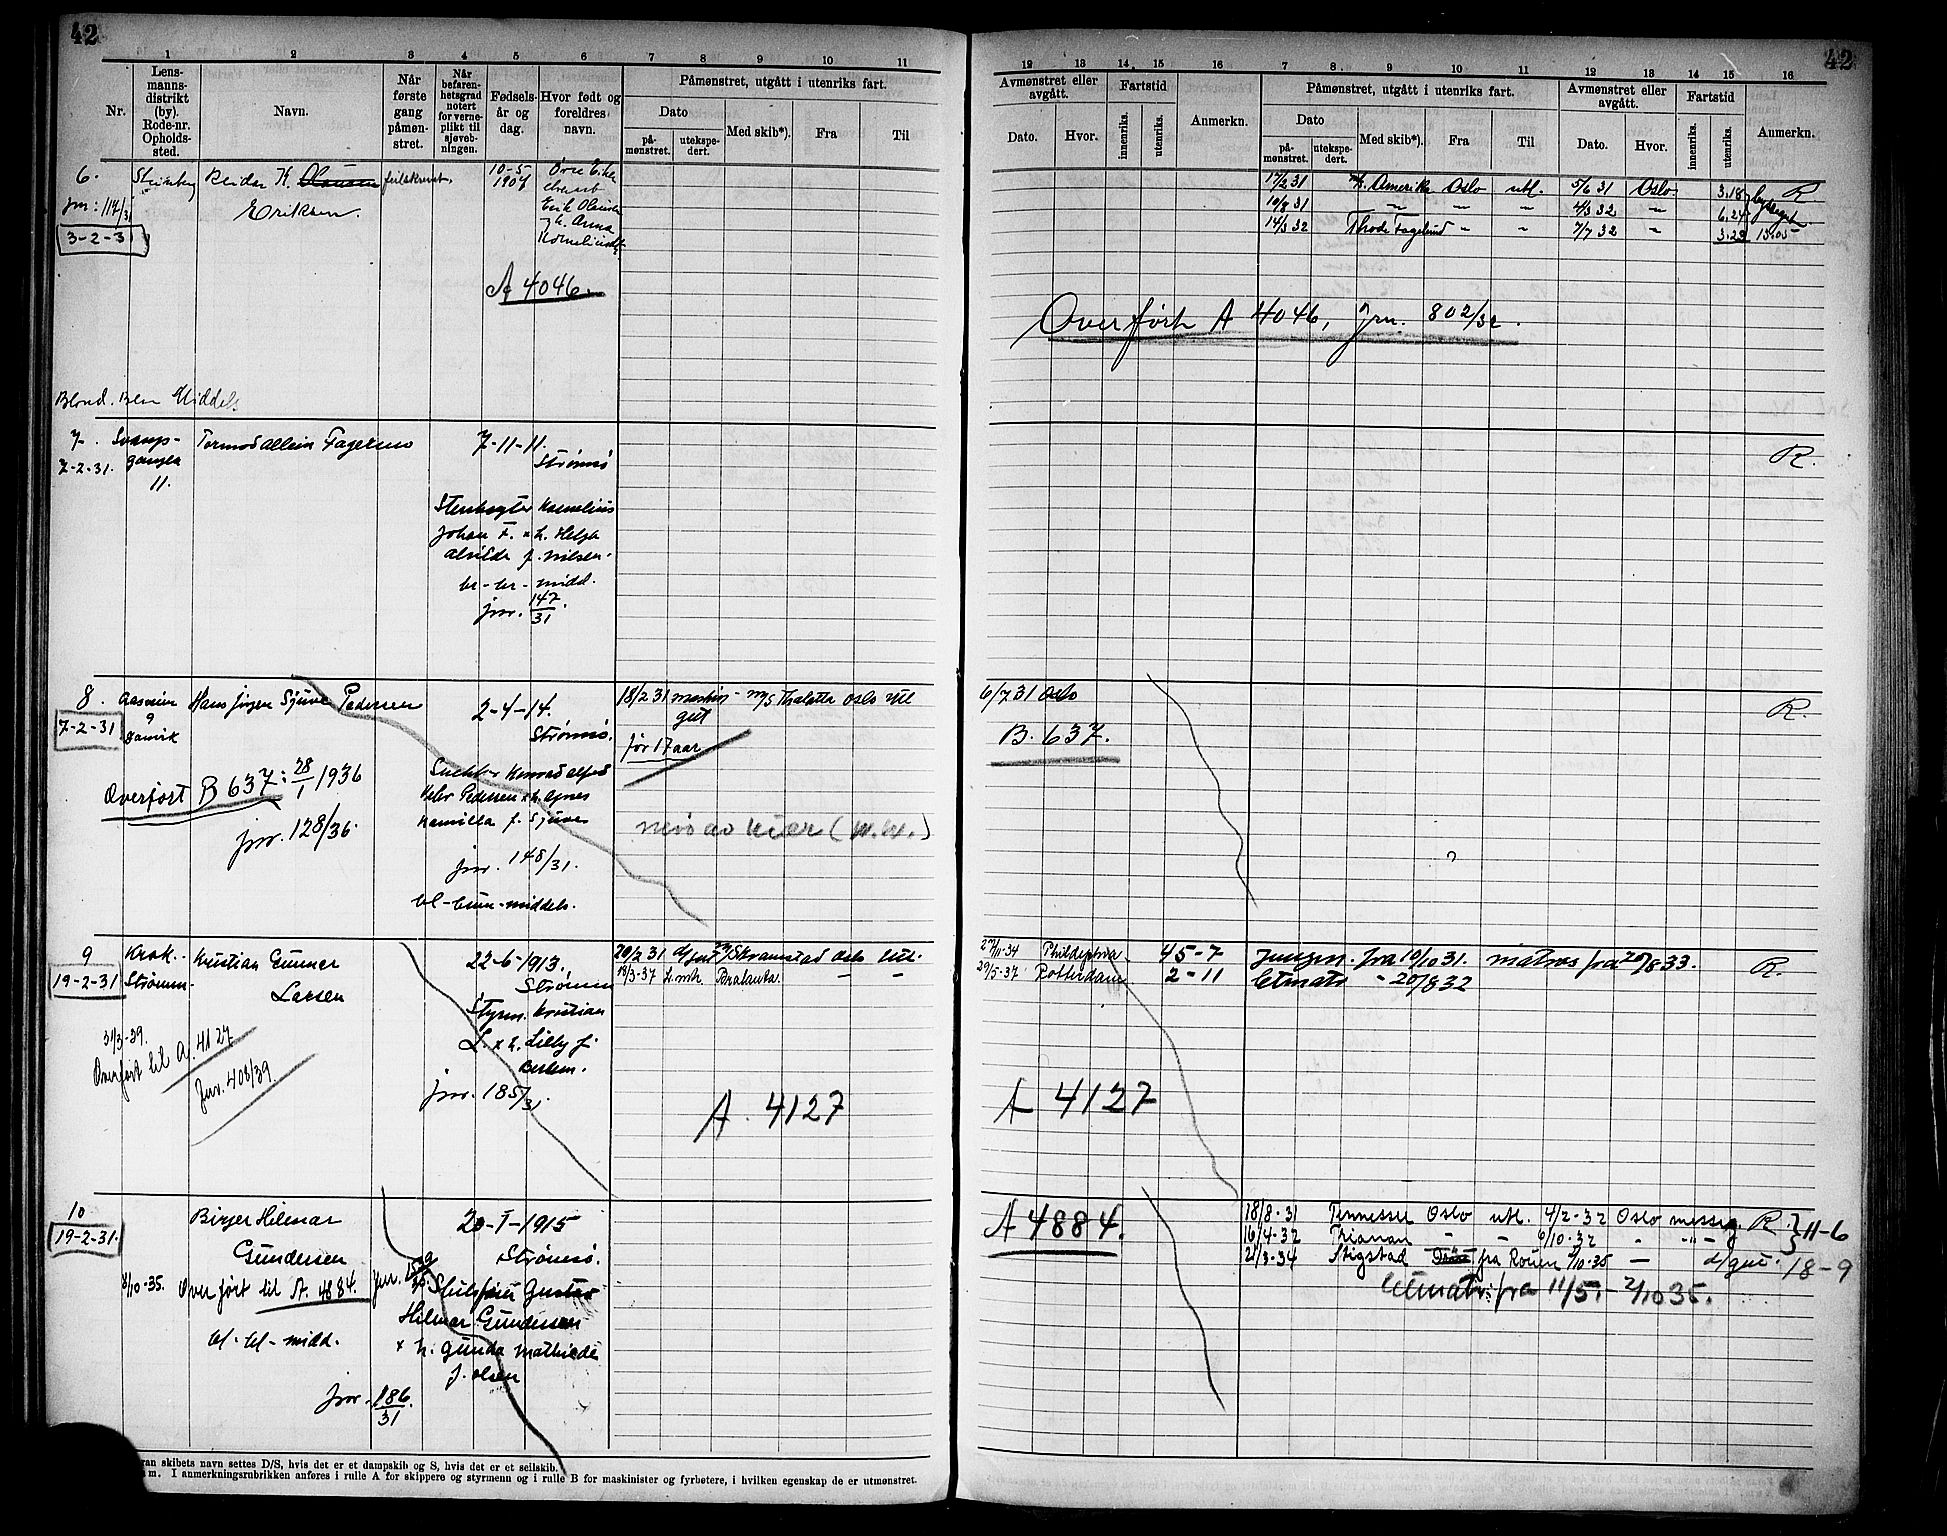 42
42
1 2 3 4 5 6 7 8 9 10 11
12 13 14 15 16 7 8 9 10 11 12 13 14 15 16
Nr.
Lens-
manns-
distrikt
(by).
Rode-nr.
Opholds-
sted.
Navn.
Når
første
gang
påmøn-
stret.
Når
befaren-
hetsgrad
notert
for verne-
plikt til
sjøveb-
ningen.
Fødsels-
år og
dag.
Hvor født og
foreldres
navn.
Påmønstret, utgått i utenriks fart.
Dato
på-
mønstret.
utekspe-
dert.
Med skib*).
Fra
Til
Avmønstret eller
avgått.
Dato.
Hvor.
Fartstid
innenriks.
utenriks.
Anmerkn.
Påmønstret, utgått i utenriks fart.
Dato
på-
mønstret.
utekspe-
dert.
Med skib*)
Fra
Til
Avmønstret eller
avgått.
Dato.
Hvor.
Fartstid
innenriks.
utenriks.
Anmerkn.
6. Reidar K. Olausen
Eriksen.
jnr: 117/31
3-2-31
10-5
1907
Øvre Eiker
Erik Olausen
A 4046.
17/2 31 Amerika Oslo utl. 5/6 31 Oslo 3.18 R
10/8 31 " " " 4/3 32 " 6.24
14/3 32 Thode Fagelund " " 7/7 32 " 3.23 13.05
Overført A 4046, Jrn. 802/32.
Blond. Middels
7. Tormod Allein Fagermo 7-11-11.
7-2-31. 11. Strømsø
Kornelius
Johan F. x h. Helga
Alvilde f. Nilsen.
br-br-midd.
jnr. 147/31
R.
8. Hans Jørgen Sjuve Pedersen 2-4-14.
7-2-31
Strømsø.
18/2 31 maskin- m/s Thalatta Oslo Utl
gut
før 17 aar
6/7 31 Oslo
B. 637.
R.
Overført B 637: 28/1 1936
jnr. 128/36.
Pedersen x h. Agnes
Kamilla f. Sjuve
jnr. 148/31.
bl-brun-middels.
9 Krok. Kristian Gunnar
19-2-31 Strømm-
Larsen
22-6-1913.
Strømm
Styrm. Kristian
L. x h. Lilly f.
jnr. 185/31.
20/2 31 d/gut Skramstad Oslo Utl.
18/3-37 " "
27/11-34 45-7 Jungm. fra 10/10 31. matros fra 20/8 33. R.
29/5-37 Rotterdam 2-11 Letmatr " 20/8 32
31/3-39.
Overført til A. 4127
Jnr. 408/39
A. 4127
A 4127
10
19-2-31.
Birger Hilmar
Gundersen
20-1-1915
Strømsø.
8/10-35. Overført til A. 4884.
Gustav
Hilmar Gundersen
x h. Gunda Mathilde
f. Olsen
bl-bl-midd.
jnr. 186/31
A 4884.
18/8-31 Tennessee Oslo utl. 4/2-32 Oslo messeg. R } 11-6
16/4-32 Trianon " " 6/10-32 " "
21/3-34 Stigstad fra Rouen 2/10-35 — d/gut. 18-9
Letmatr. fra 11/5.- 2/10 35.
ran skibets navn settes D/S, hvis det er et dampskib og S, hvis det er et seilskib.
m. I anmerkningsrubrikken anføres i rulle A for skippere og styrmenn og i rulle B for maskinister og fyrbøtere, i hvilken egenskap de er utmønstret.